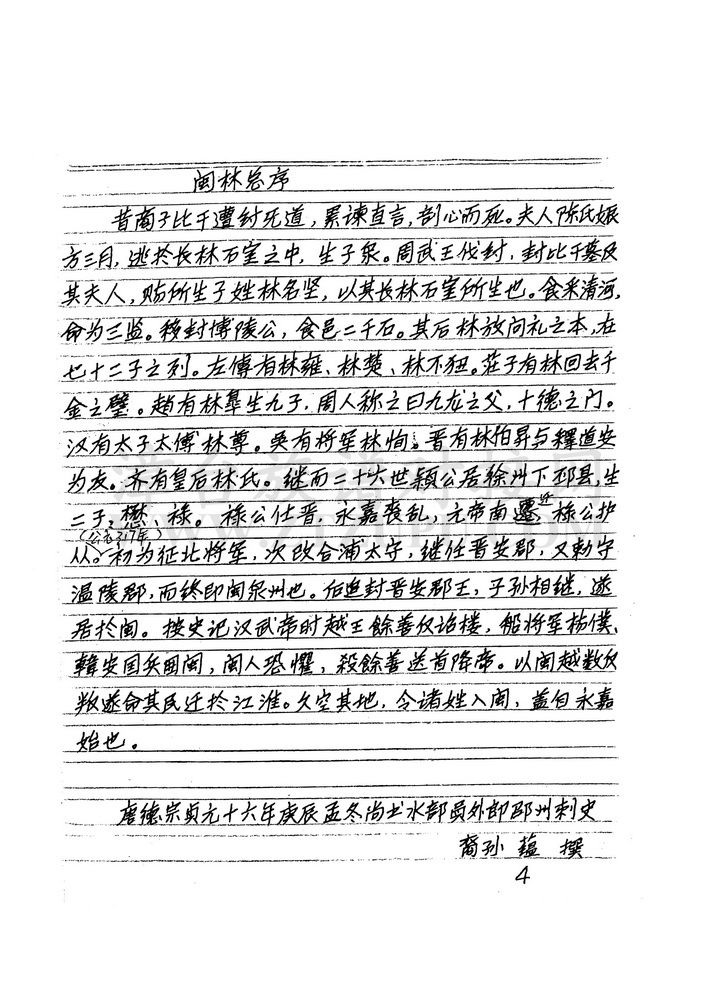 闽林总序
昔商子比干遭纣死道，累谏直言，剖心而死。夫人陈氏娠
方三月，逃於长林石室之中，生子泉。周武王伐纣，封比干墓及
其夫人，赐所生子姓林名坚，以其长林石室所生也。食采清河，
命为三监。移封博陵公，食邑二千石。其后林放问礼之本，在
七十二子之列。左傅有林雍、林楚、林不狃。莊子有林回去千
金之璧。趙有林皐生九子，周人称之曰九龙之父，十德之门。
汉有太子太傅林尊。吴有将军林恂。晋有林伯昇与釋道安
为友。齐有皇后林氏。继而二十六世颖公居徐州下邳县，生
二子，懋、禄。禄公仕晋，永嘉丧乱，元帝南遷，禄公护
(公元317年)
从。初为征北将军，次改合浦太守，继任晋安郡，又勅守
温陵郡，而终即闽泉州也。后追封晋安郡王，子孙相继，遂
居於闽。按史记汉武帝时越王餘善仅诒楼，船将军杨僕、
韓安国兵困闽，闽人恐懼，殺餘善送首降帝。以闽越数反
叛遂命其民迁於江淮。久空其地，令诸姓入闽，盖自永嘉
始也。
唐德宗贞元十六年庚辰孟冬尚书水部员外郎邵州刺史
裔孙 蕴 撰
4